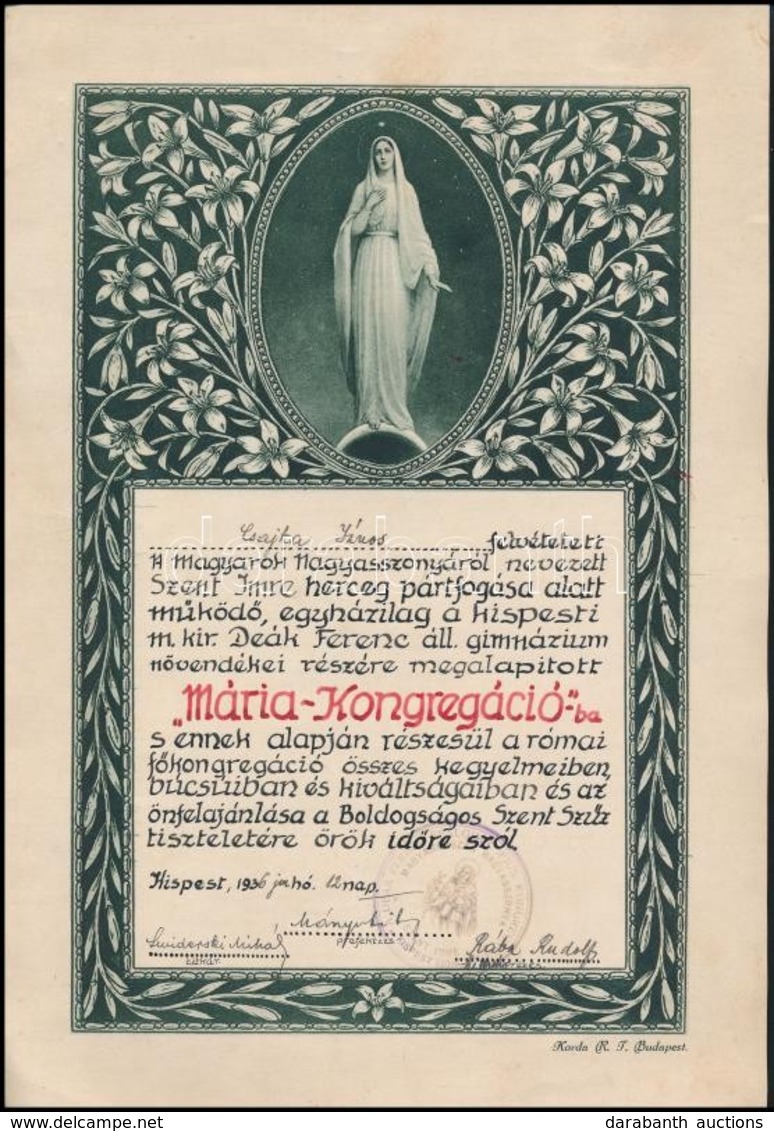 Csajka János felvétetett
A Magyarok Nagyasszonyáról nevezett
Szent Imre herceg pártfogása alatt
működő, egyházilag a kispesti
m. kir. Deák Ferenc áll. gimnázium
növendékei részére megalapított
„Mária-Kongregáció"-ba
s ennek alapján részesül a római
főkongregáció összes kegyelmeiben,
búcsúiban és kiváltságaiban és az
önfelajánlása a Boldogságos Szent Szűz
tiszteletére örök időre szól.
Kispest, 1936 jun hó. 12 nap.
prefektus
Swiderski Mihály Rába Rudolf
titkár
Korda R. T. Budapest.
darabanth
darabanth auctions